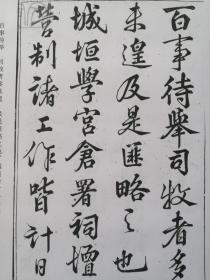 百事待舉司牧者多
未遑及是匪略之也
城垣學宮倉署祠壇
營制諸工作皆計日